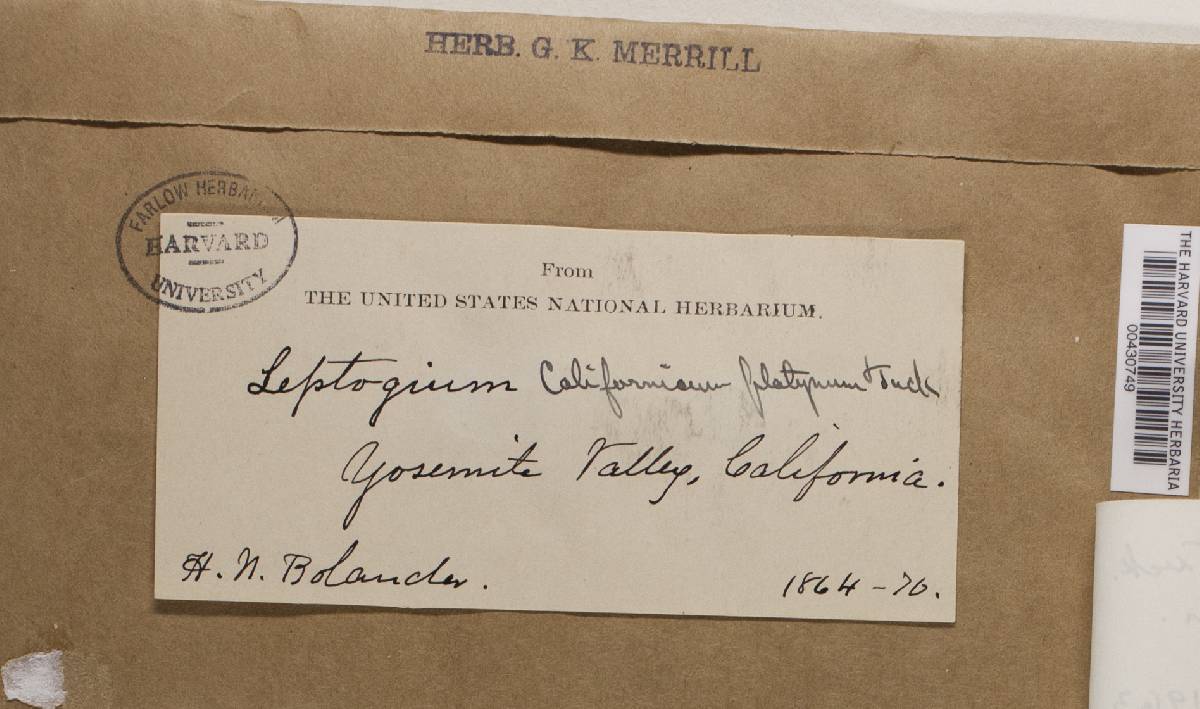 HERB. G. K. MERRILL
FARLOW HERBARIUM
HARVARD
UNIVERSITY
From
THE UNITED STATES NATIONAL HERBARIUM.
Leptogium Californicum platynum Tuck
Yosemite Valley, California.
H. N. Bolander.
1864-70.
THE HARVARD UNIVERSITY HERBARIA
00430749